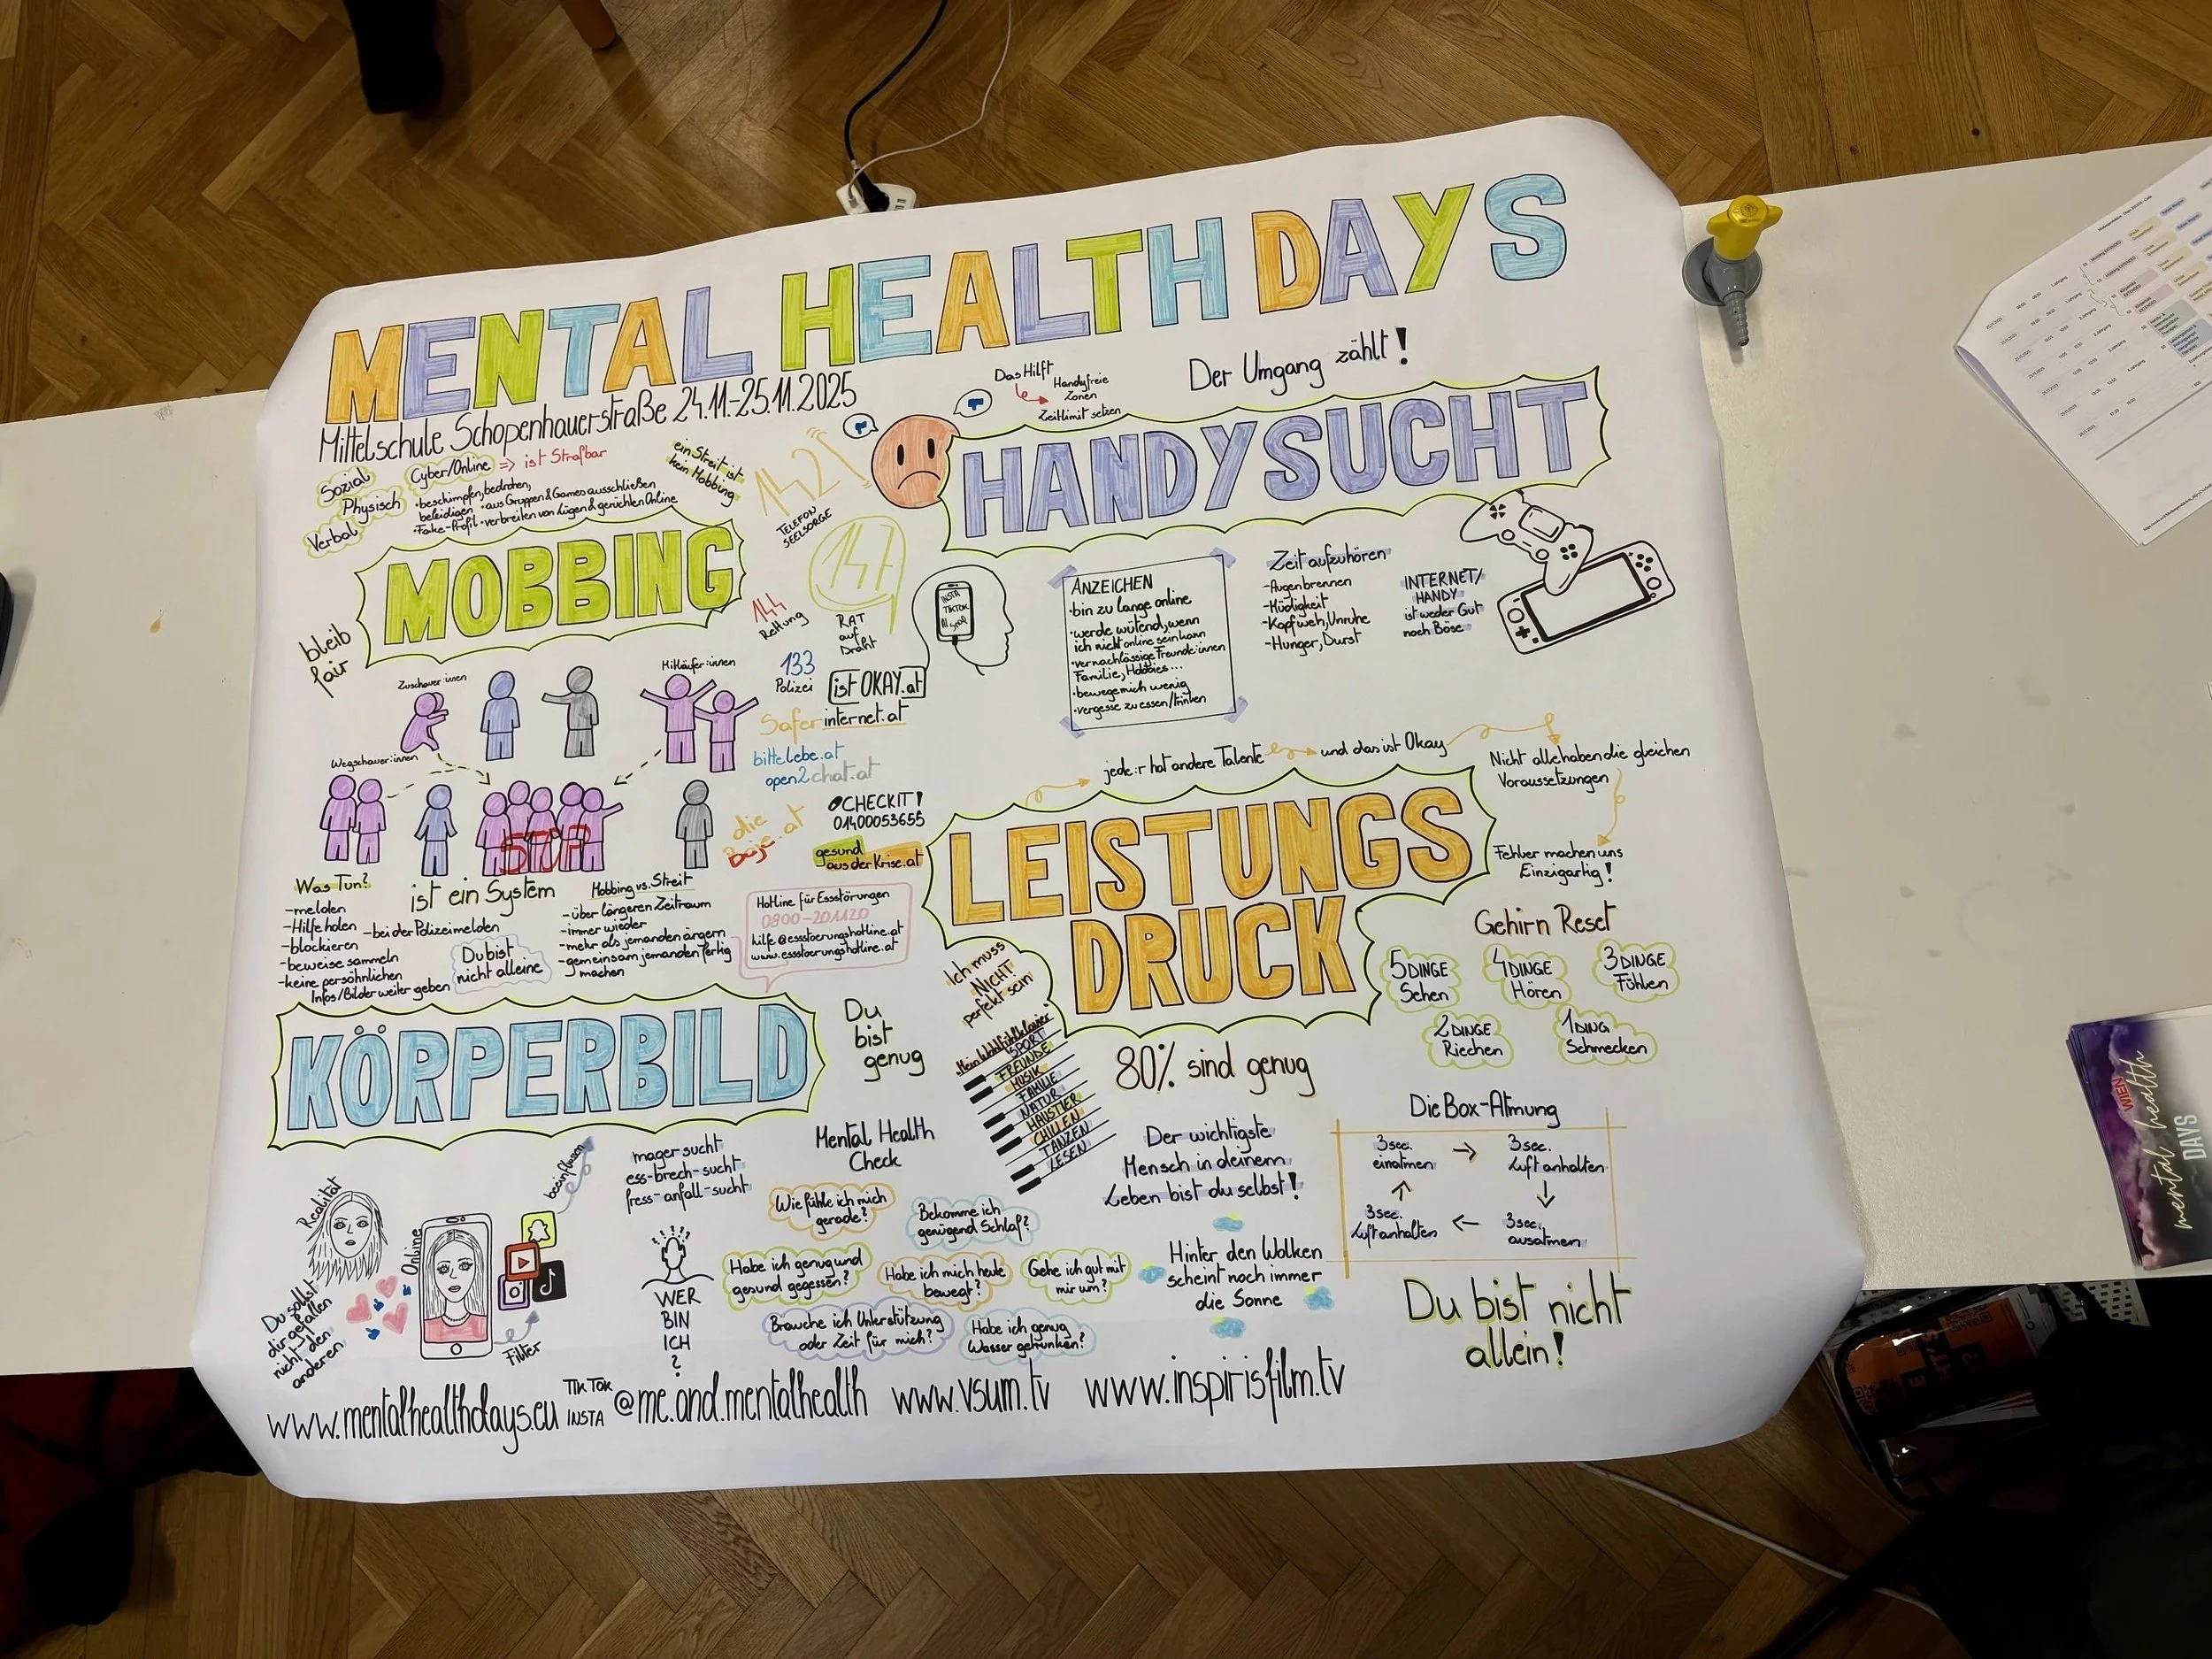 MENTAL HEALTH DAYS
Mittelschule Schopenhauerstraße 24.11-25.11.2025
Sozial
Physisch
Verbal
Cyber/Online => ist Strafbar
•beschimpfen, bedrohen,
beleidigen •aus Gruppen & Games ausschließen
•Fake-Profil •verbreiten von Lügen & gerüchten Online
ein Streit ist
kein Mobbing
MOBBING
bleib
fair
Zuschauer:innen
Mitläufer:innen
Wegschauer:innen
STOP
Was Tun?
-melden
-Hilfe holen
-bei der Polizei melden
-blockieren
-beweise sammeln
-keine persönlichen
Infos/Bilder weiter geben
ist ein System
Du bist
nicht alleine
Mobbing vs. Streit
-über längeren Zeitraum
-immer wieder
-mehr als jemanden ärgern
-gemeinsam jemanden fertig
machen
142
TELEFON
SEELSORGE
147
RAT
auf
Draht
144
Rettung
133
Polizei
istOKAY.at
Saferinternet.at
bittelebe.at
open2chat.at
die
Boje.at
CHECKIT!
01400053655
gesund
aus der Krise.at
Hotline für Essstörungen
0800-201120
hilfe@essstoerungshotline.at
www.essstoerungshotline.at
Das Hilft
Handyfreie
Zonen
Zeitlimit setzen
Der Umgang zählt!
HANDYSUCHT
INSTA
TIKTOK
ANZEICHEN
•bin zu lange online
•werde wütend, wenn
ich nicht online sein kann
•vernachlässige Freunde:innen
Familie, Hobbies...
•bewege mich wenig
•vergesse zu essen/trinken
Zeit aufzuhören
-Augenbrennen
-Müdigkeit
-Kopfweh, Unruhe
-Hunger, Durst
INTERNET/
HANDY
ist weder Gut
noch Böse
jede:r hat andere Talente
und das ist Okay
Nicht alle haben die gleichen
Voraussetzungen
Fehler machen uns
Einzigartig!
LEISTUNGS
DRUCK
Ich muss
NICHT
perfekt sein
Mein Wohlfühlklavier
SPORT
FREUNDE
MUSIK
FAMILIE
NATUR
HAUSTIER
CHILLEN
TANZEN
LESEN
80% sind genug
Der wichtigste
Mensch in deinem
Leben bist du selbst!
Hinter den Wolken
scheint noch immer
die Sonne
Gehirn Reset
5 DINGE
Sehen
4 DINGE
Hören
3 DINGE
Fühlen
2 DINGE
Riechen
1 DING
Schmecken
Die Box-Atmung
3 sec.
einatmen
3 sec.
Luft anhalten
3 sec.
Luft anhalten
3 sec.
ausatmen
Du bist nicht
allein!
KÖRPERBILD
Du
bist
genug
Realität
Online
beeinflussen
Filter
Du sollst
dir gefallen
nicht den
anderen
mager sucht
ess-brech-sucht
fress-anfall-sucht
WER
BIN
ICH
?
Mental Health
Check
Wie fühle ich mich
gerade?
Bekomme ich
genügend Schlaf?
Habe ich genug und
gesund gegessen?
Habe ich mich heute
bewegt?
Gehe ich gut mit
mir um?
Brauche ich Unterstützung
oder Zeit für mich?
Habe ich genug
Wasser getrunken?
www.mentalhealthdays.eu
TIKTOK
INSTA
@me.and.mentalhealth
www.vsum.tv
www.inspirisfilm.tv
WIEN
mental health
DAYS